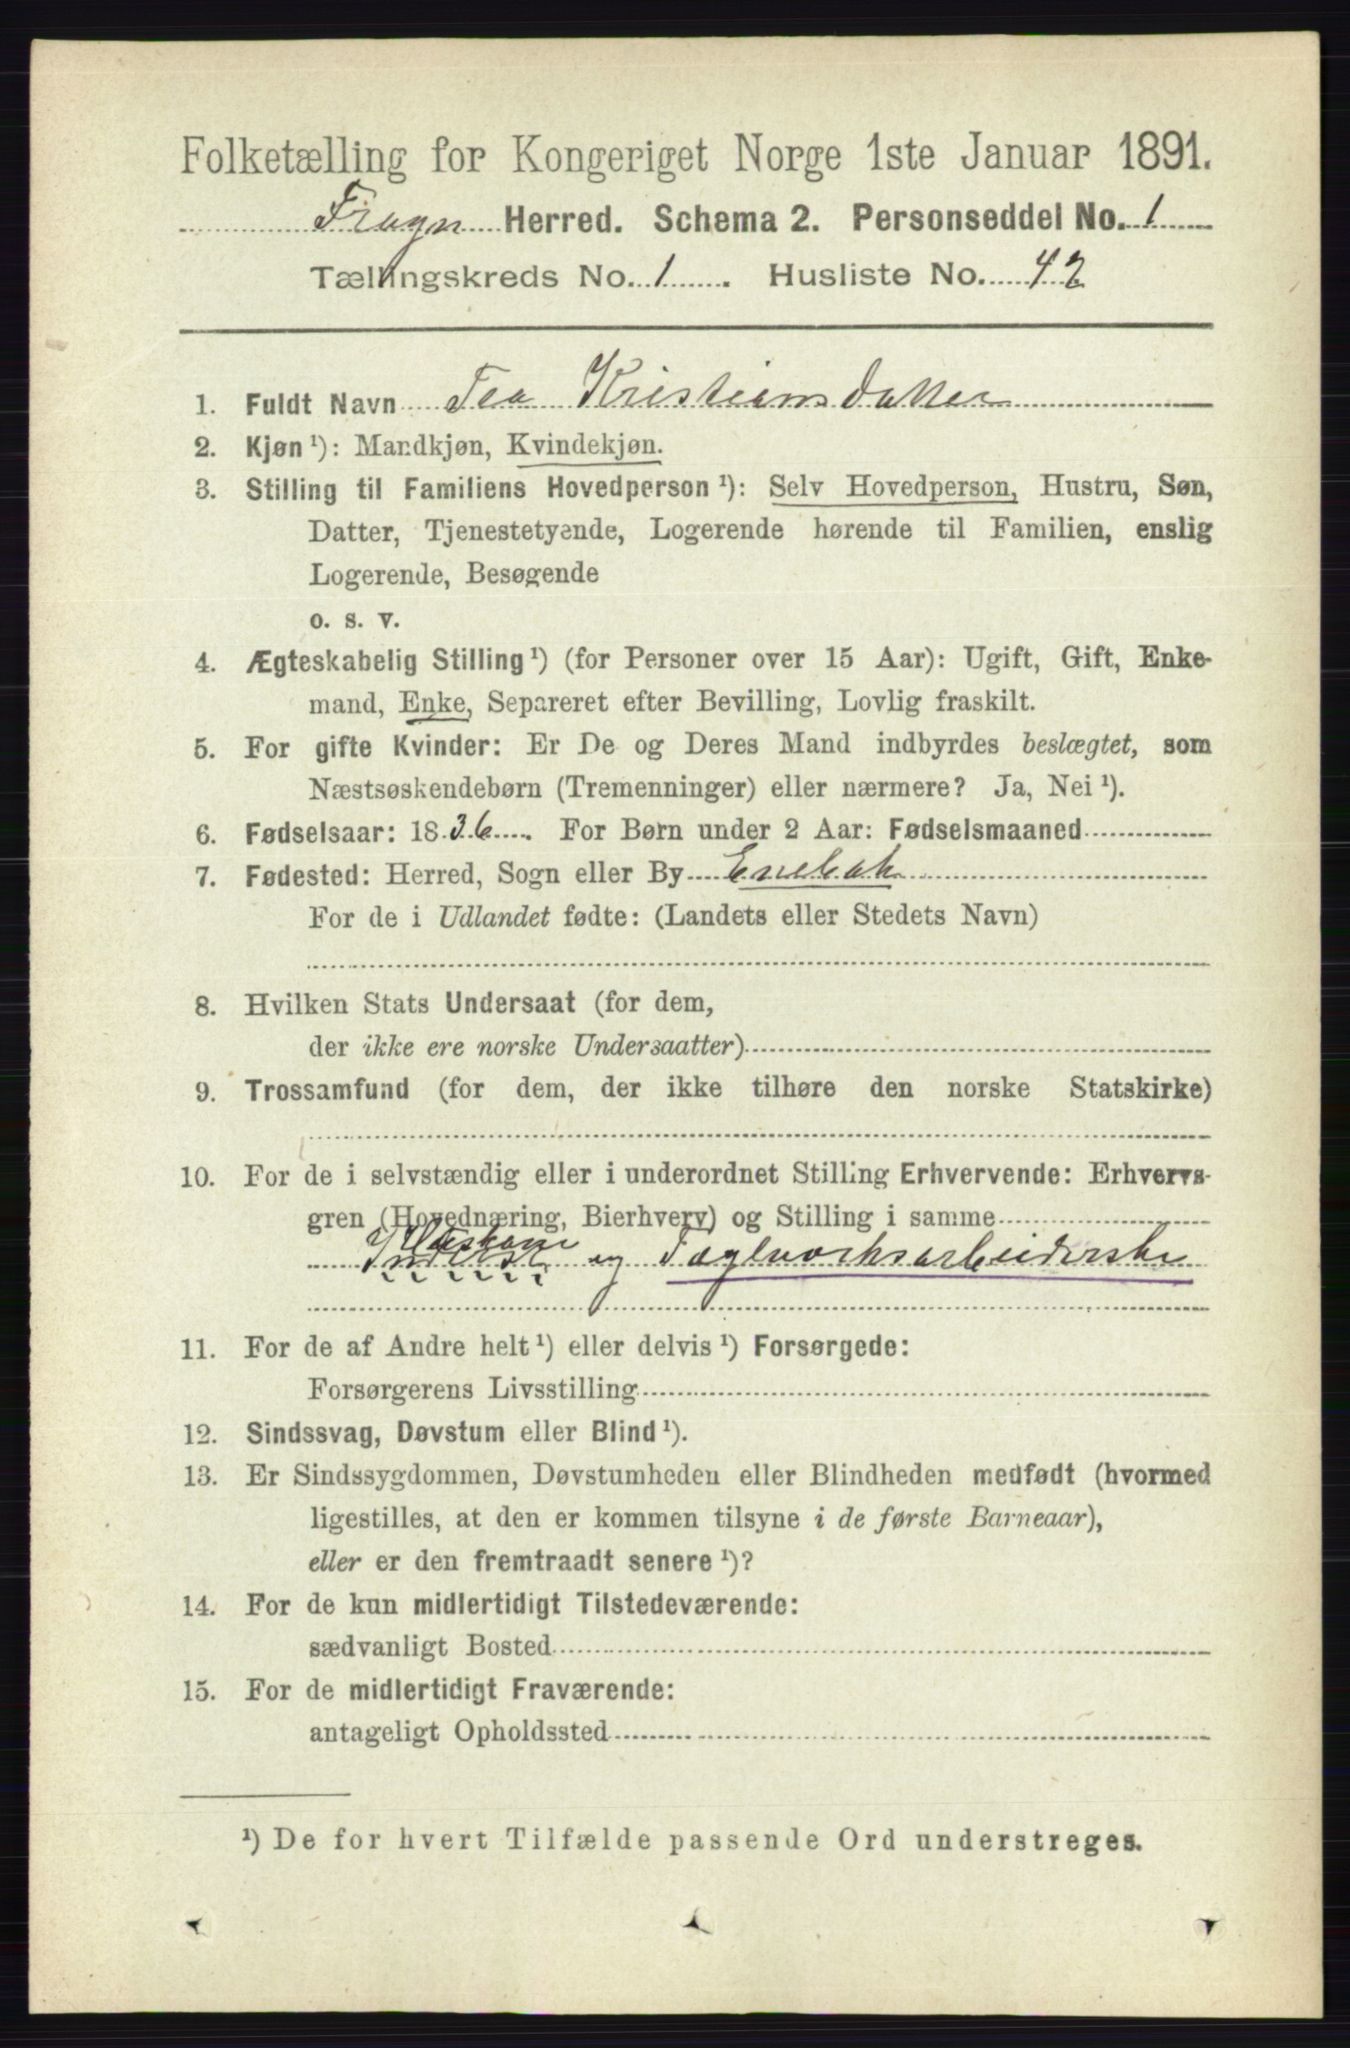 Folketælling for Kongeriget Norge 1ste Januar 1891.
Frogn Herred. Schema 2. Personseddel No. 1
Tællingskreds No. 1. Husliste No. 42
1. Fuldt Navn Tea Kristiansdatter
2. Kjøn ¹): Mandkjøn, Kvindekjøn.
3. Stilling til Familiens Hovedperson ¹): Selv Hovedperson, Hustru, Søn,
Datter, Tjenestetyende, Logerende hørende til Familien, enslig
Logerende, Besøgende
o. s. v.
4. Ægteskabelig Stilling ¹) (for Personer over 15 Aar): Ugift, Gift, Enke-
mand, Enke, Separeret efter Bevilling, Lovlig fraskilt.
5. For gifte Kvinder: Er De og Deres Mand indbyrdes beslægtet, som
Næstsøskendebørn (Tremenninger) eller nærmere? Ja, Nei ¹).
6. Fødselsaar: 1836. For Børn under 2 Aar: Fødselsmaaned
7. Fødested: Herred, Sogn eller By Enebak
For de i Udlandet fødte: (Landets eller Stedets Navn)
8. Hvilken Stats Undersaat (for dem,
der ikke ere norske Undersaatter)
9. Trossamfund (for dem, der ikke tilhøre den norske Statskirke)
10. For de i selvstændig eller i underordnet Stilling Erhvervende: Erhvervs-
gren (Hovednæring, Bierhverv) og Stilling i samme
og Taglværksarbeiderske
11. For de af Andre helt ¹) eller delvis ¹) Forsørgede:
Forsørgerens Livsstilling
12. Sindssvag, Døvstum eller Blind ¹).
13. Er Sindssygdommen, Døvstumheden eller Blindheden medfødt (hvormed
ligestilles, at den er kommen tilsyne i de første Barneaar),
eller er den fremtraadt senere ¹)?
14. For de kun midlertidigt Tilstedeværende:
sædvanligt Bosted
15. For de midlertidigt Fraværende:
antageligt Opholdssted
¹) De for hvert Tilfælde passende Ord understreges.